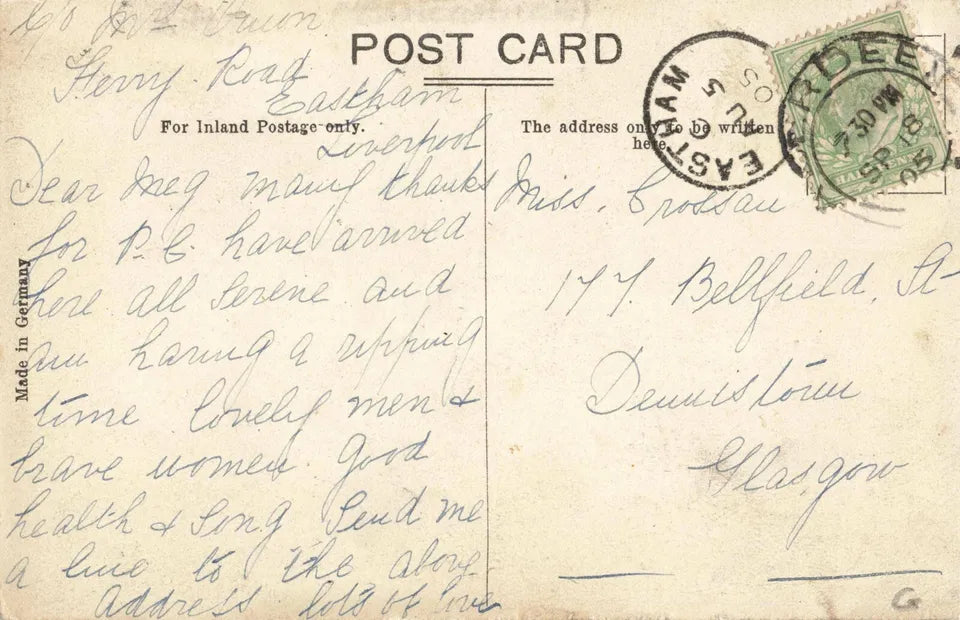 c/o Mrs
Ferry Road
Eastham
Liverpool
POST CARD
For Inland Postage only.
The address only to be written
here.
Made in Germany
Dear Meg many thanks
for P.C. have arrived
here all serene and
am having a ripping
time lovely men &
brave women good
health & song Send me
a line to the above
address lots of love
Miss. Crossan
177. Bellfield. St
Dennistown
Glasgow
EASTHAM
AU 5
05
ABERDEEN
7 30 PM
SP 18
05
G